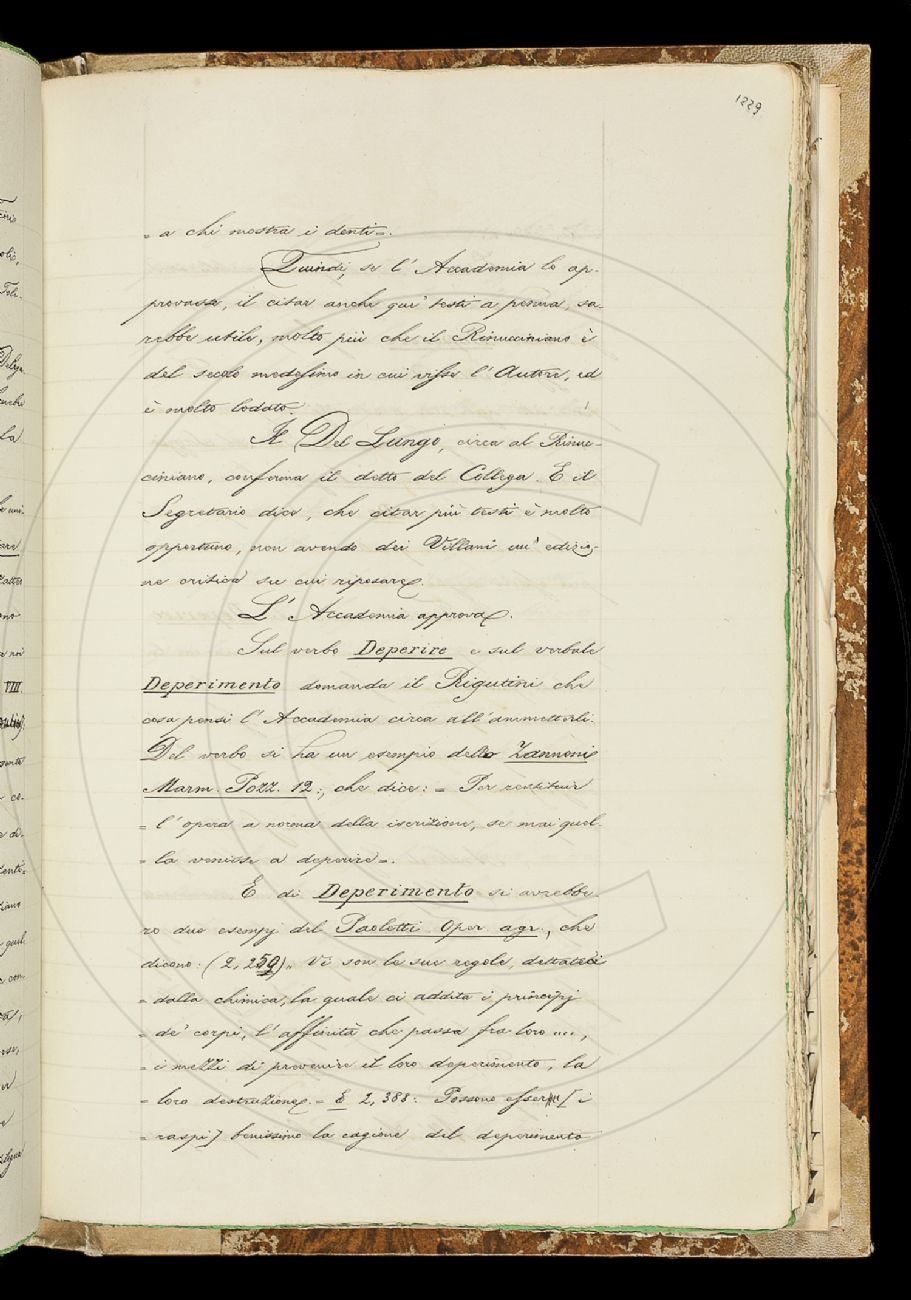 1229
= a chi mostra i denti =.
Quindi, se l'Accademia lo ap-
provasse, il citar anche que' testi a penna, sa-
rebbe utile, molto più che il Rinucciniano è
del secolo medesimo in cui visse l'Autore, ed
è molto lodato.
Il Del Lungo, circa al Rinuc-
ciniano, conferma il detto del Collega. E il
Segretario dice, che citar più testi è molto
opportuno, non avendo dei Villani un' edizio-
ne critica su cui riposare.
L'Accademia approva.
Sul verbo Deperire e sul verbale
Deperimento domanda il Rigutini che
cosa pensi l'Accademia circa all'ammetterli.
Del verbo si ha un esempio dello Zannoni
Marm. Pozz. 12:, che dice: = Per restituir
= l'opera a norma della iscrizione, se mai quel-
= la venisse a deperire =.
E di Deperimento si avrebbe-
ro due esempj del Paoletti Oper. agr., che
dicono: (2, 259) = Vi son le sue regole, dettateci
= dalla chimica, la quale ci addita i principj
= de' corpi, l'affinità che passa fra loro ....,
= i mezzi di prevenire il loro deperimento, la
= loro destruzione. = E 2, 388: Possono esser [i
= raspi] benissimo la cagione del deperimento